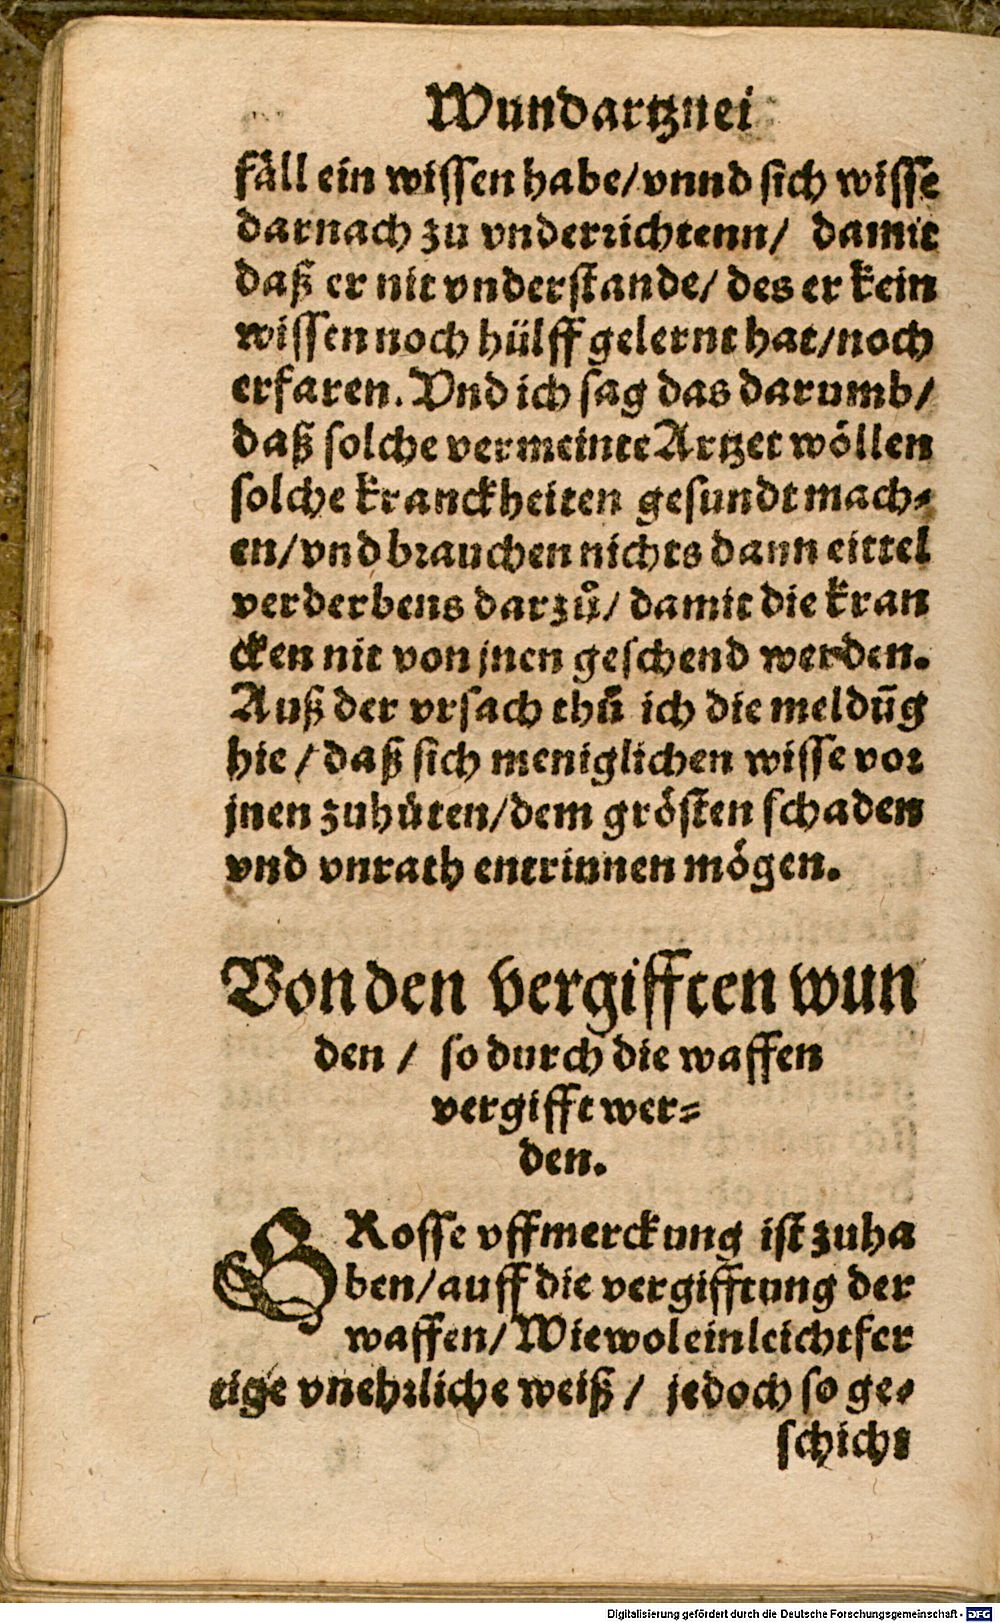 Wundartznei
fäll ein wissen habe/vnnd sich wisse
darnach zu vnderrichtenn/ damit
daß er nit vnderstande/ des er kein
wissen noch hülff gelernt hat/noch
erfaren. Vnd ich sag das darumb/
daß solche vermeinte Artzet wöllen
solche kranckheiten gesundt mach⸗
en/vnd brauchen nichts dann eittel
verderbens darzů/ damit die kran
cken nit von jnen geschend werden.
Auß der vrsach thů ich die meldūg
hie / daß sich meniglichen wisse vor
jnen zuhüten/dem grösten schaden
vnd vnrath entrinnen mögen.
Von den vergifften wun
den / so durch die waffen
vergifft wer⸗
den.
GRosse vffmerckung ist zuha
ben/auff die vergifftung der
waffen/Wiewol ein leichtfer
tige vnehrliche weiß / jedoch so ge⸗
schicht
Digitalisierung gefördert durch die Deutsche Forschungsgemeinschaft - DFG